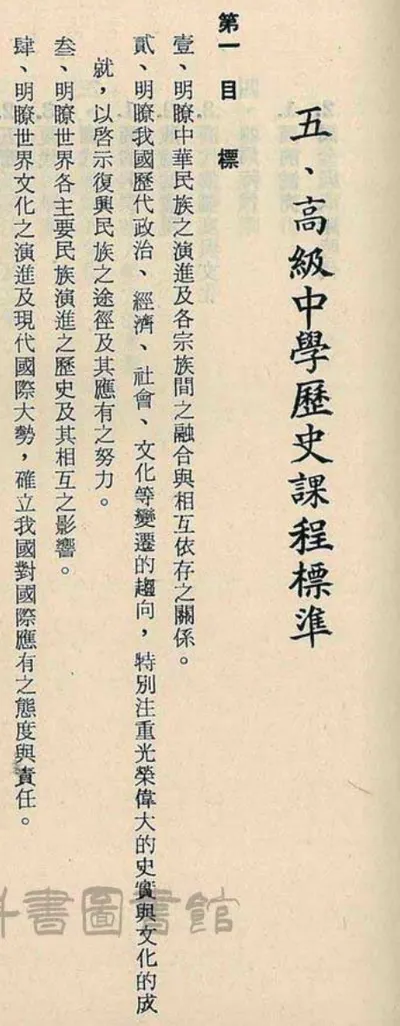 五、高級中學歷史課程標準
第一 目標
壹、明瞭中華民族之演進及各宗族間之融合與相互依存之關係。
貳、明瞭我國歷代政治、經濟、社會、文化等變遷的趨向，特別注重光榮偉大的史實與文化的成
就，以啓示復興民族之途徑及其應有之努力。
叁、明瞭世界各主要民族演進之歷史及其相互之影響。
肆、明瞭世界文化之演進及現代國際大勢，確立我國對國際應有之態度與責任。
科書圖書館